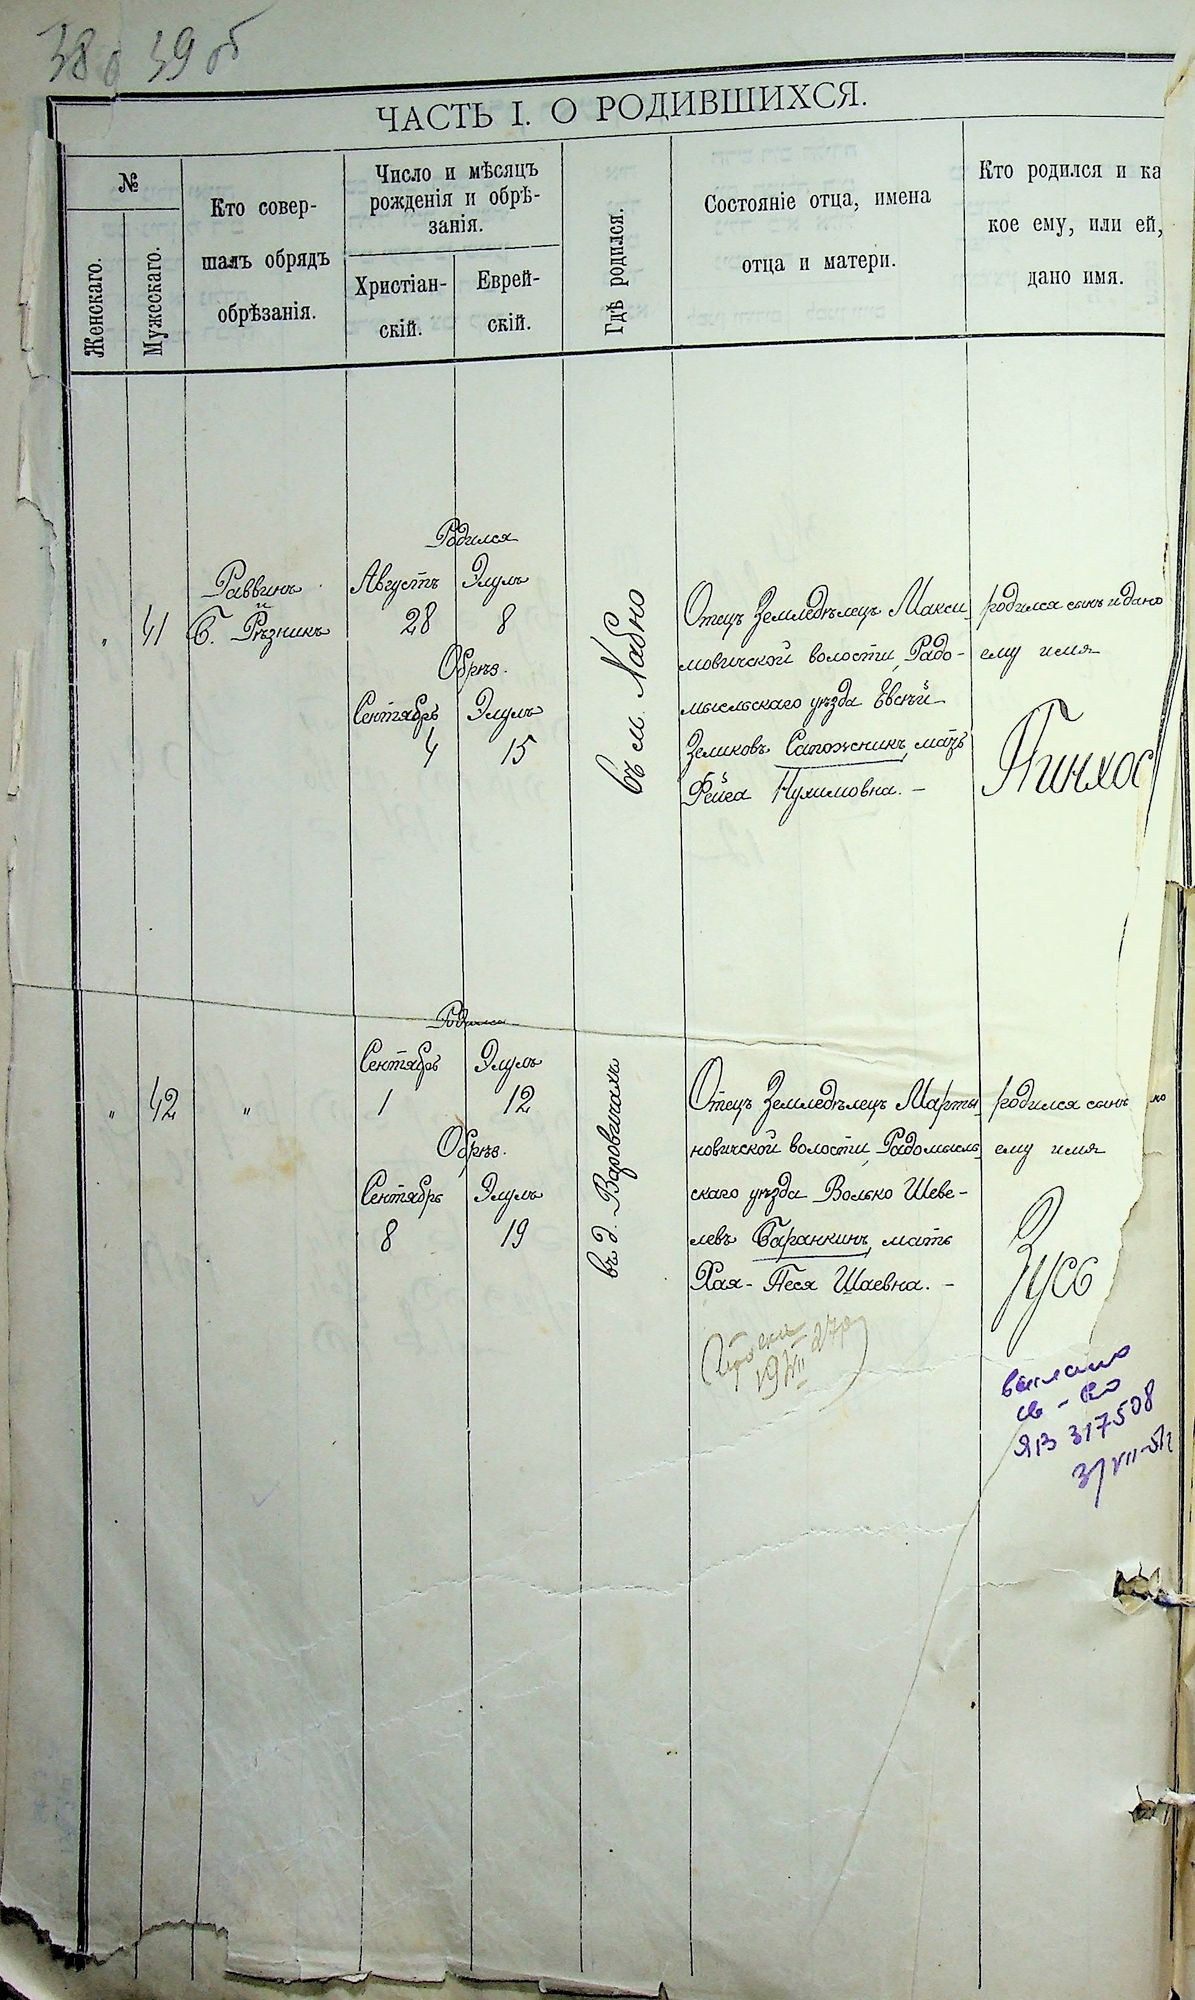 38 39 об
ЧАСТЬ I. О РОДИВШИХСЯ.
№
Женскаго.
Мужескаго.
Кто совер-
шалъ обрядъ
обрѣзанія.
Число и мѣсяцъ
рожденія и обрѣ-
занія.
Христіан-
скій.
Еврей-
скій.
Гдѣ родился.
Состояніе отца, имена
отца и матери.
Кто родился и ка
кое ему, или ей,
дано имя.
„
41
Раввинъ
и
Б. Рѣзникъ
Родился
Августъ Элулъ
28 8
Обрѣз.
Сентябрь Элулъ
4 15
въ м.
Отецъ Земледѣлецъ Макси
мовичской волости, Радо-
мысльскаго уѣзда Евсѣй
Зеликовъ Сапожникъ, мать
Фейга Нухимовна. –
родился сынъ и дано
ему имя
Пинхос
„
42
„
Родился
Сентябрь Элулъ
1 12
Обрѣз.
Сентябрь Элулъ
8 19
въ д. Варовичахъ
Отецъ Земледѣлецъ Марты
новичской волости, Радомысль
скаго уѣзда Волько Шеве-
левъ Баранкинъ, мать
Хая-Песя Шаевна. –
родился сынъ но
ему имя
Зусь
св-во
ЯВ 317508